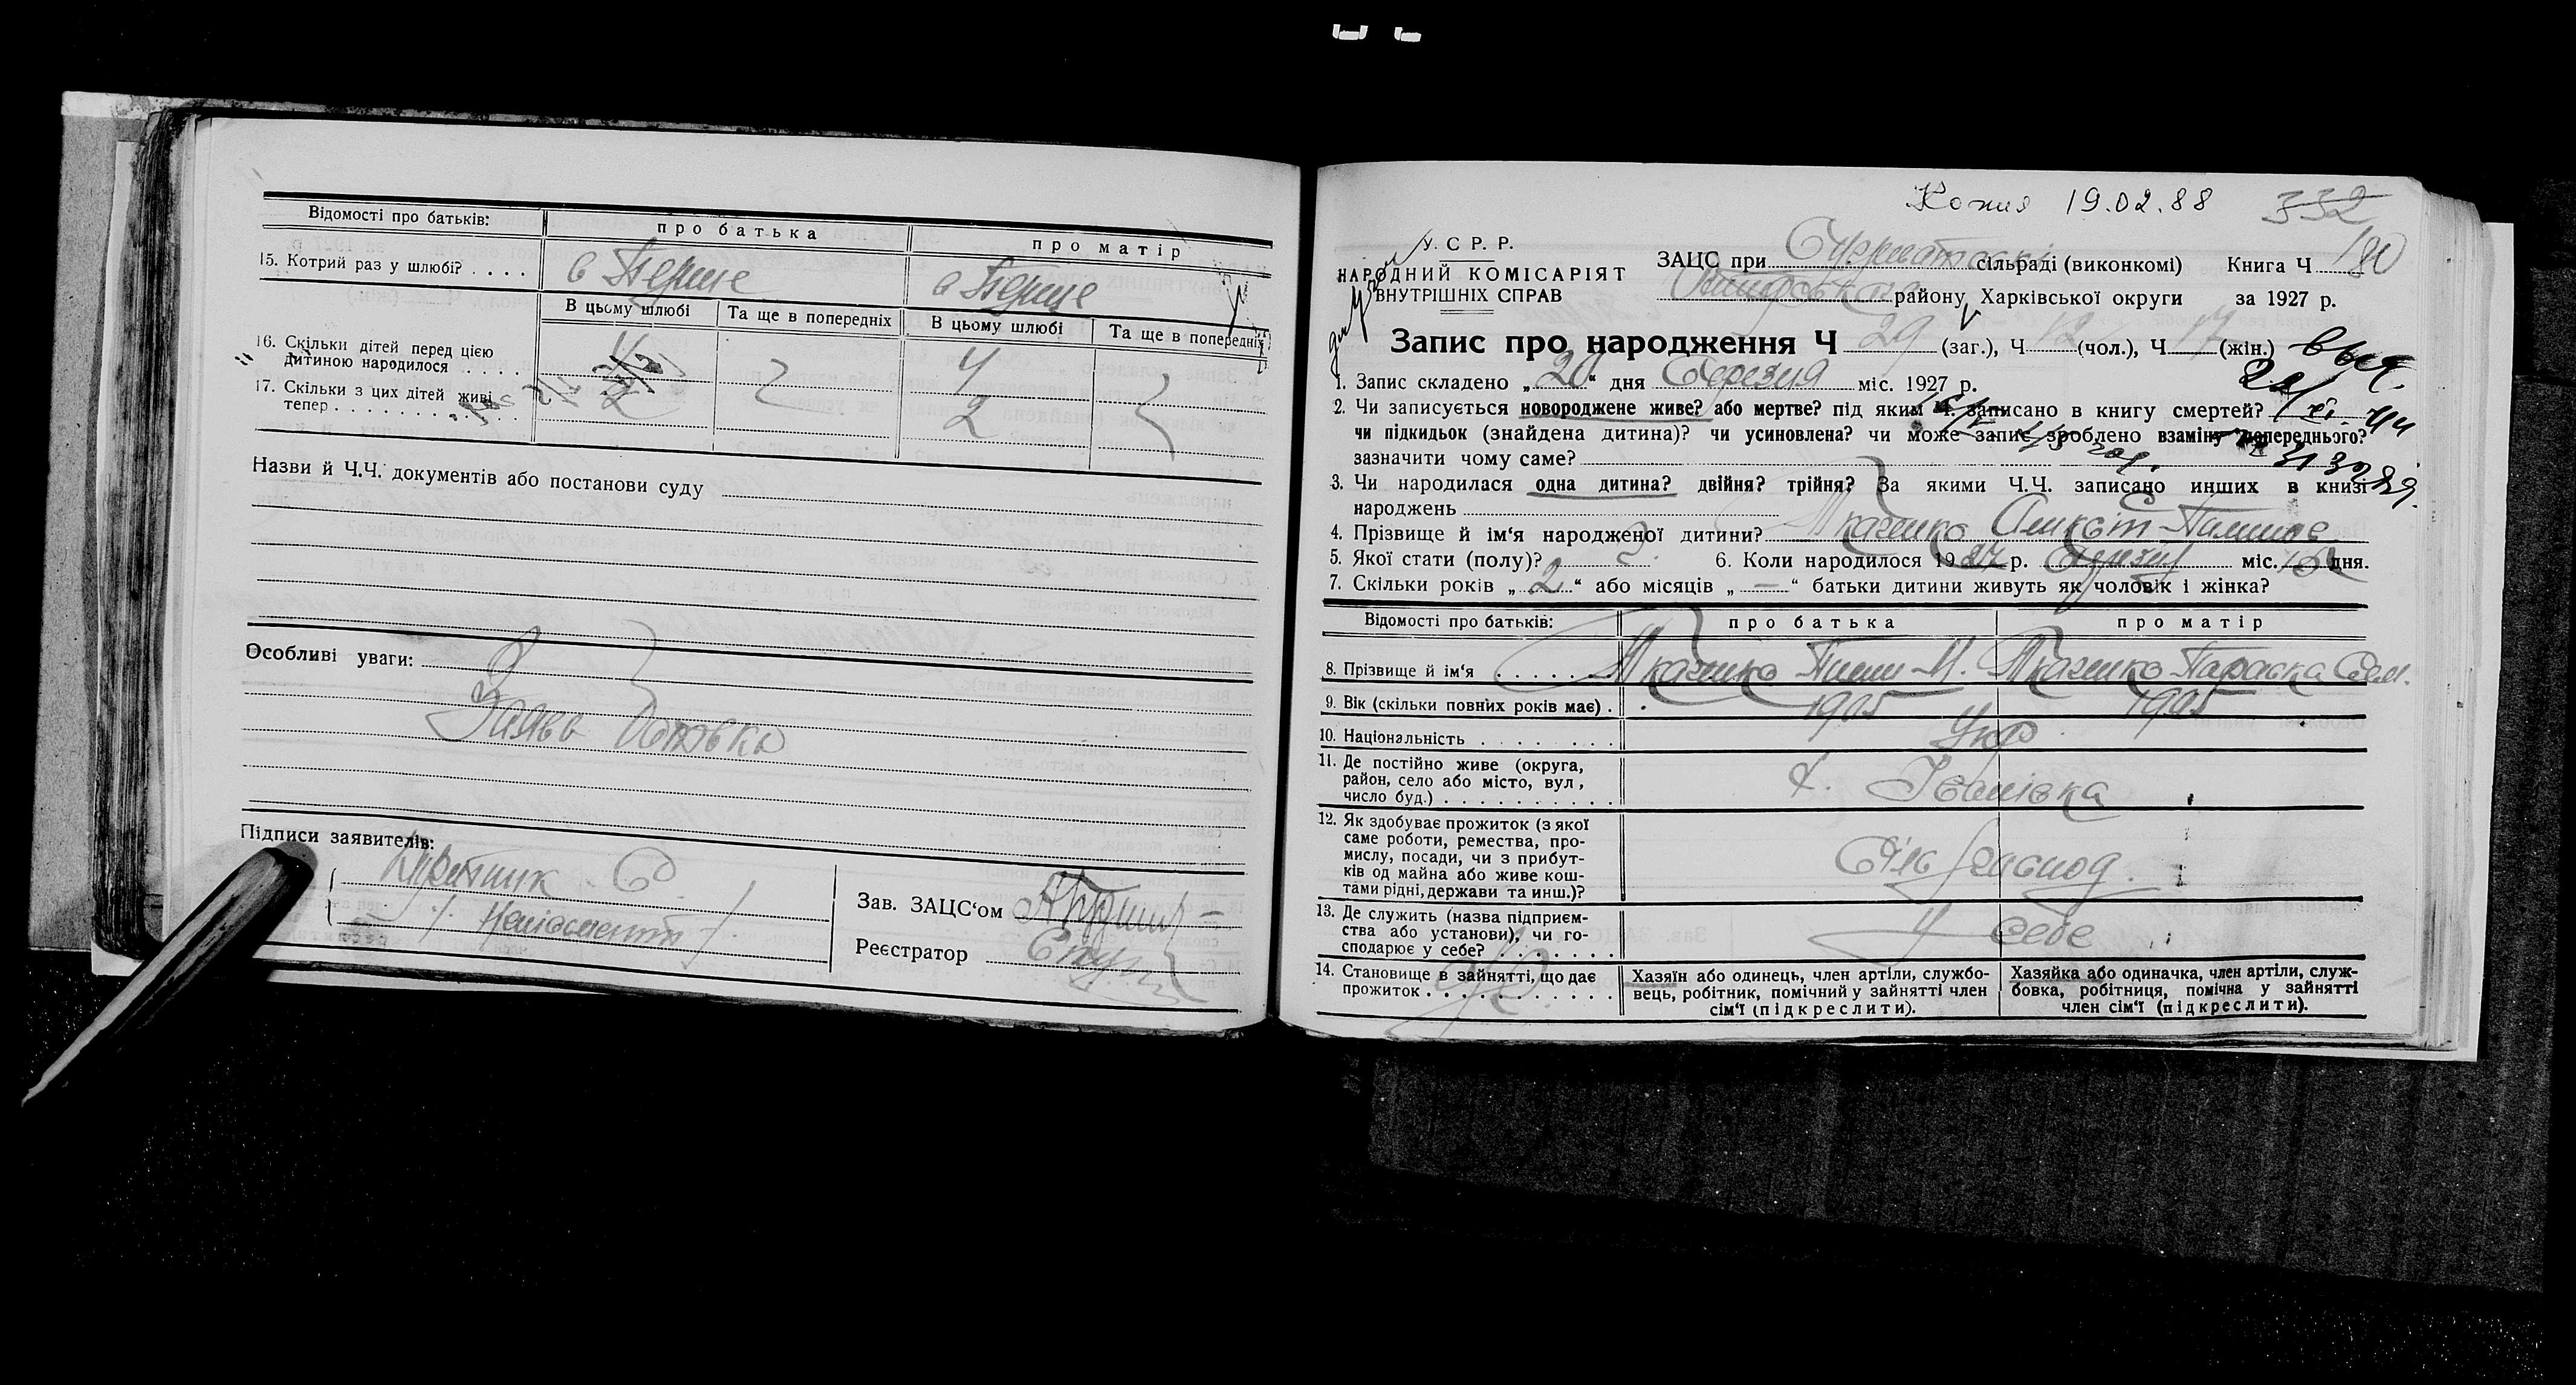 Відомості про батьків:
про батька
про матір
15. Котрий раз у шлюбі? . . . .
в Перше
в Перше
В цьому шлюбі
Та ще в попередніх
В цьому шлюбі
Та ще в попередніх
16. Скільки дітей перед цією
дитиною народилося . . . .
4
17. Скільки з цих дітей живі
тепер . . . . . . . . . .
2
2
Назви й Ч.Ч. документів або постанови суду
Особливі уваги:
Заява
Підписи заявителів:
С.
Неписьменн
Зав. ЗАЦС‘ом
Реєстратор
Копия 19.02.88 332
У. С Р. Р.
НАРОДНИЙ КОМІСАРІЯТ
ВНУТРІШНІХ СПРАВ
ЗАЦС при сільраді (виконкомі) Книга Ч 180
району Харківської округи за 1927 р.
Запис про народження Ч 29 (заг.), Ч 12 (чол.), Ч 17 (жін.)
1. Запис складено „ 20 “ дня Березня міс. 1927 р.
2. Чи записується новороджене живе? або мертве? під яким Ч. записано в книгу смертей?
чи підкидьок (знайдена дитина)? чи усиновлена? чи може запис зроблено взаміну попереднього?
зазначити чому саме?
3. Чи народилася одна дитина? двійня? трійня? За якими Ч.Ч. записано инших в книзі
народжень
4. Прізвище й ім‘я народженої дитини? Ткаченко
5. Якої стати (полу)? 6. Коли народилося 1927 р. Березня міс. дня.
7. Скільки років „ 2 “ або місяців „ — “ батьки дитини живуть як чоловік і жінка?
Відомості про батьків:
про батька
про матір
8. Прізвище й ім‘я . . . . . .
Ткаченко М.
Ткаченко Параска Сем.
9. Вік (скільки повних років має) .
1905
1905
10. Національність . . . . . . .
Укр
11. Де постійно живе (округа,
район, село або місто, вул,
число буд.) . . . . . . . . . .
х. Іванівка
12. Як здобуває прожиток (з якої
саме роботи, ремества, про-
мислу, посади, чи з прибут-
ків од майна або живе кош-
тами рідні, держави та инш.)?
Сіль господ.
13. Де служить (назва підприєм-
ства або установи), чи го-
сподарює у себе? . . . . . . .
У себе
14. Становище в зайнятті, що дає
прожиток . . . . . . . . . . .
Хазяїн або одинець, член артіли, службо-
вець, робітник, помічний у зайнятті член
сім‘ї (підкреслити).
Хазяйка або одиначка, член артіли, служ-
бовка, робітниця, помічна у зайнятті
член сім‘ї (підкреслити).